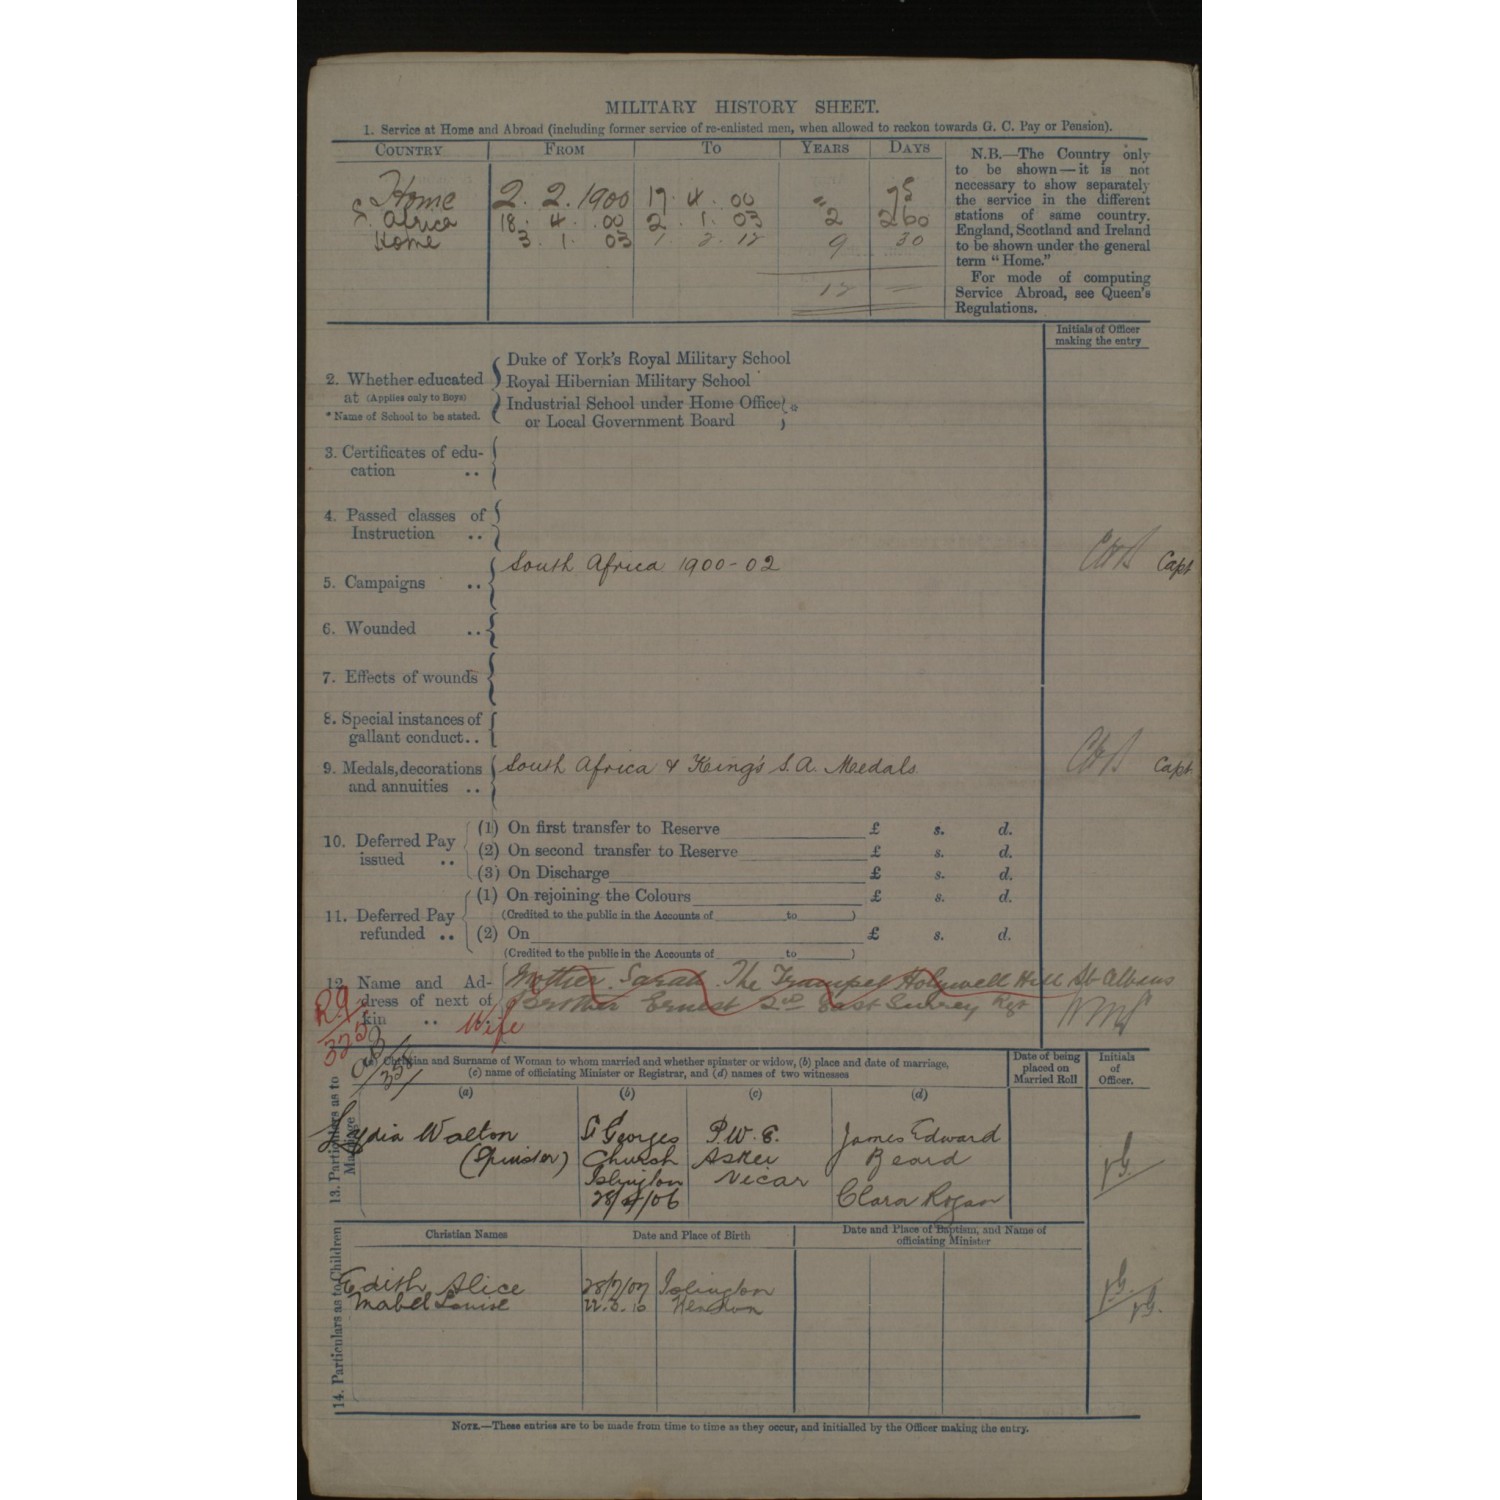 MILITARY HISTORY SHEET.
1. Service at Home and Abroad (including former service of re-enlisted men, when allowed to reckon towards G. C. Pay or Pension).
COUNTRY FROM TO YEARS DAYS
Home 2. 2. 1900 17. 4. 00 " 75
S. Africa 18. 4. 00 2. 1. 03 2 260
Home 3. 1. 03 1. 2. 12 9 30
12 =
N.B.—The Country only
to be shown—it is not
necessary to show separately
the service in the different
stations of same country.
England, Scotland and Ireland
to be shown under the general
term "Home."
For mode of computing
Service Abroad, see Queen's
Regulations.
Initials of Officer
making the entry
2. Whether educated
at (Applies only to Boys)
* Name of School to be stated.
Duke of York's Royal Military School
Royal Hibernian Military School
Industrial School under Home Office *
or Local Government Board
3. Certificates of edu-
cation ..
4. Passed classes of
Instruction ..
5. Campaigns .. South Africa 1900-02 Capt
6. Wounded ..
7. Effects of wounds
8. Special instances of
gallant conduct..
9. Medals, decorations
and annuities ..
South Africa & King's S.A. Medals Capt
10. Deferred Pay
issued ..
(1) On first transfer to Reserve £ s. d.
(2) On second transfer to Reserve £ s. d.
(3) On Discharge £ s. d.
11. Deferred Pay
refunded ..
(1) On rejoining the Colours £ s. d.
(Credited to the public in the Accounts of to )
(2) On £ s. d.
(Credited to the public in the Accounts of to )
12. Name and Ad-
dress of next of
kin ..
Mother Sarah The Trumpet Holywell Hill St Albans
Brother Ernest 2nd East Surrey Rgt
Wife
13. Particulars as to
Marriage
(a) Christian and Surname of Woman to whom married and whether spinster or widow, (b) place and date of marriage,
(c) name of officiating Minister or Registrar, and (d) names of two witnesses
Date of being
placed on
Married Roll
Initials
of
Officer.
(a) (b) (c) (d)
Lydia Walton
(Spinster)
St Georges
Church
Islington
28/4/06
P. W. E.
Vicar
James Edward
Beard
Clara Rogan
14. Particulars as to Children
Christian Names Date and Place of Birth Date and Place of Baptism, and Name of
officiating Minister
Edith Alice 28/7/07 Islington
Mabel Louise 22.3.10 Hendon
NOTE.—These entries are to be made from time to time as they occur, and initialled by the Officer making the entry.